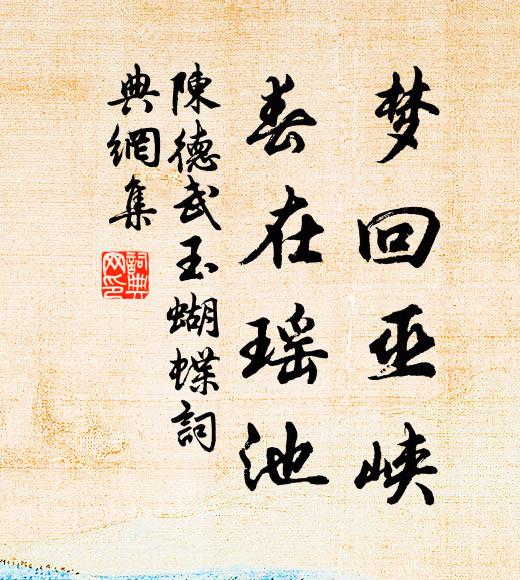 梦回巫峡
春在瑶池
陳德武玉蝴蝶詞
典網集
詞典
网印